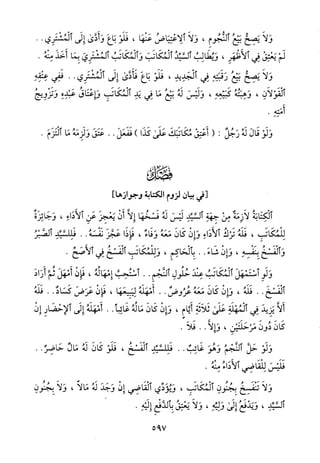 وَلَا يَصِحُّ بَيْعُ النُّجُومِ ، وَلَا الِاعْتِيَاضُ عَنْهَا ، فَلَوْ بَاعَ وَأَدَّىٰ إِلَى الْمُشْتَرِي . .
لَمْ يَعْتِقْ فِي الْأَظْهَرِ ، وَيُطَالِبُ السَّيِّدُ الْمُكَاتَبَ وَالْمُكَاتَبُ الْمُشْتَرِيَ بِمَا أَخَذَ مِنْهُ .
وَلَا يَصِحُّ بَيْعُ رَقَبَتِهِ فِي الْجَدِيدِ ، فَلَوْ بَاعَ فَأَدَّىٰ إِلَى الْمُشْتَرِي . . فَفِي عِتْقِهِ
الْقَوْلَانِ ، وَهِبَتُهُ كَبَيْعِهِ ، وَلَيْسَ لَهُ بَيْعُ مَا فِي يَدِ الْمُكَاتَبِ وَإِعْتَاقُ عَبْدِهِ وَتَزْوِيجُ
أَمَتِهِ .
وَلَوْ قَالَ لَهُ رَجُلٌ : ( أَعْتِقْ مُكَاتَبَكَ عَلَىٰ كَذَا ) فَفَعَلَ . . عَتَقَ وَلَزِمَهُ مَا الْتَزَمَ .
فَصْلٌ
[في بيان لزوم الكتابة وجوازها]
الْكِتَابَةُ لَازِمَةٌ مِنْ جِهَةِ السَّيِّدِ لَيْسَ لَهُ فَسْخُهَا إِلَّا أَنْ يَعْجِزَ عَنِ الْأَدَاءِ ، وَجَائِزَةٌ
لِلْمُكَاتَبِ ، فَلَهُ تَرْكُ الْأَدَاءِ وَإِنْ كَانَ مَعَهُ وَفَاءٌ ، فَإِذَا عَجَّزَ نَفْسَهُ . . فَلِلسَّيِّدِ الصَّبْرُ
وَالْفَسْخُ بِنَفْسِهِ ، وَإِنْ شَاءَ . . بِالْحَاكِمِ ، وَلِلْمُكَاتَبِ الْفَسْخُ فِي الْأَصَحِّ .
وَلَوِ اسْتَمْهَلَ الْمُكَاتَبُ عِنْدَ حُلُولِ النَّجْمِ . . اسْتُحِبَّ إِمْهَالُهُ ، فَإِنْ أَمْهَلَ ثُمَّ أَرَادَ
الْفَسْخَ . . فَلَهُ ، وَإِنْ كَانَ مَعَهُ عُرُوضٌ . . أَمْهَلَهُ لِبَيْعِهَا ، فَإِنْ عَرَضَ كَسَادٌ . . فَلَهُ
أَلَّا يَزِيدَ فِي الْمُهْلَةِ عَلَىٰ ثَلَاثَةِ أَيَّامٍ ، وَإِنْ كَانَ مَالُهُ غَائِباً . . أَمْهَلَهُ إِلَى الْإِحْضَارِ إِنْ
كَانَ دُونَ مَرْحَلَتَيْنِ ، وَإِلَّا . . فَلَا .
وَلَوْ حَلَّ النَّجْمُ وَهُوَ غَائِبٌ . . فَلِلسَّيِّدِ الْفَسْخُ ، فَلَوْ كَانَ لَهُ مَالٌ حَاضِرٌ . .
فَلَيْسَ لِلْقَاضِي الْأَدَاءُ مِنْهُ .
وَلَا تَنْفَسِخُ بِجُنُونِ الْمُكَاتَبِ ، وَيُؤَدِّي الْقَاضِي إِنْ وَجَدَ لَهُ مَالاً ، وَلَا بِجُنُونِ
السَّيِّدِ ، وَيَدْفَعُ إِلَىٰ وَلِيِّهِ ، وَلَا يَعْتِقُ بِالدَّفْعِ إِلَيْهِ .
٥٩٧